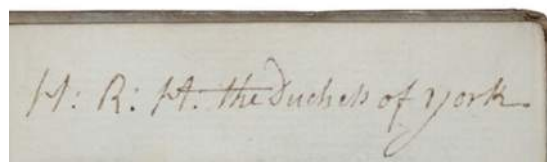 H: R: H: the Duchess of York.